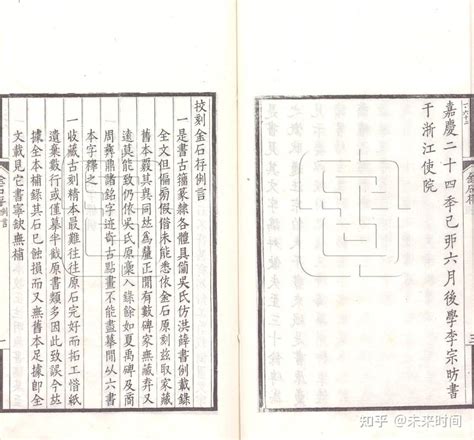 嘉慶二十四季己卯六月後學李宗昉書
于浙江使院
金石存
三
校刻金石存例言
一是書古籀篆隸各體具備吳氏仿洪薛書例載錄
全文但偏旁俶偕未能悉依金石原刻玆取家藏
舊本覈其異同
遠莫能致仍依吳氏原稾入錄餘如夏禹碑及商
周彝鼎諸銘字迹奇古點畫不能盡摹間以六書
本字釋之
一收藏古刻精本最難往往原石完好而拓工惜紙
遺棄數行或僅摹半截原書類多因此致誤今
據全本補錄其石已蝕損而又無舊本足據卽全
文載見它書寧缺無補
金石存 例言
一
知乎 @未来时间